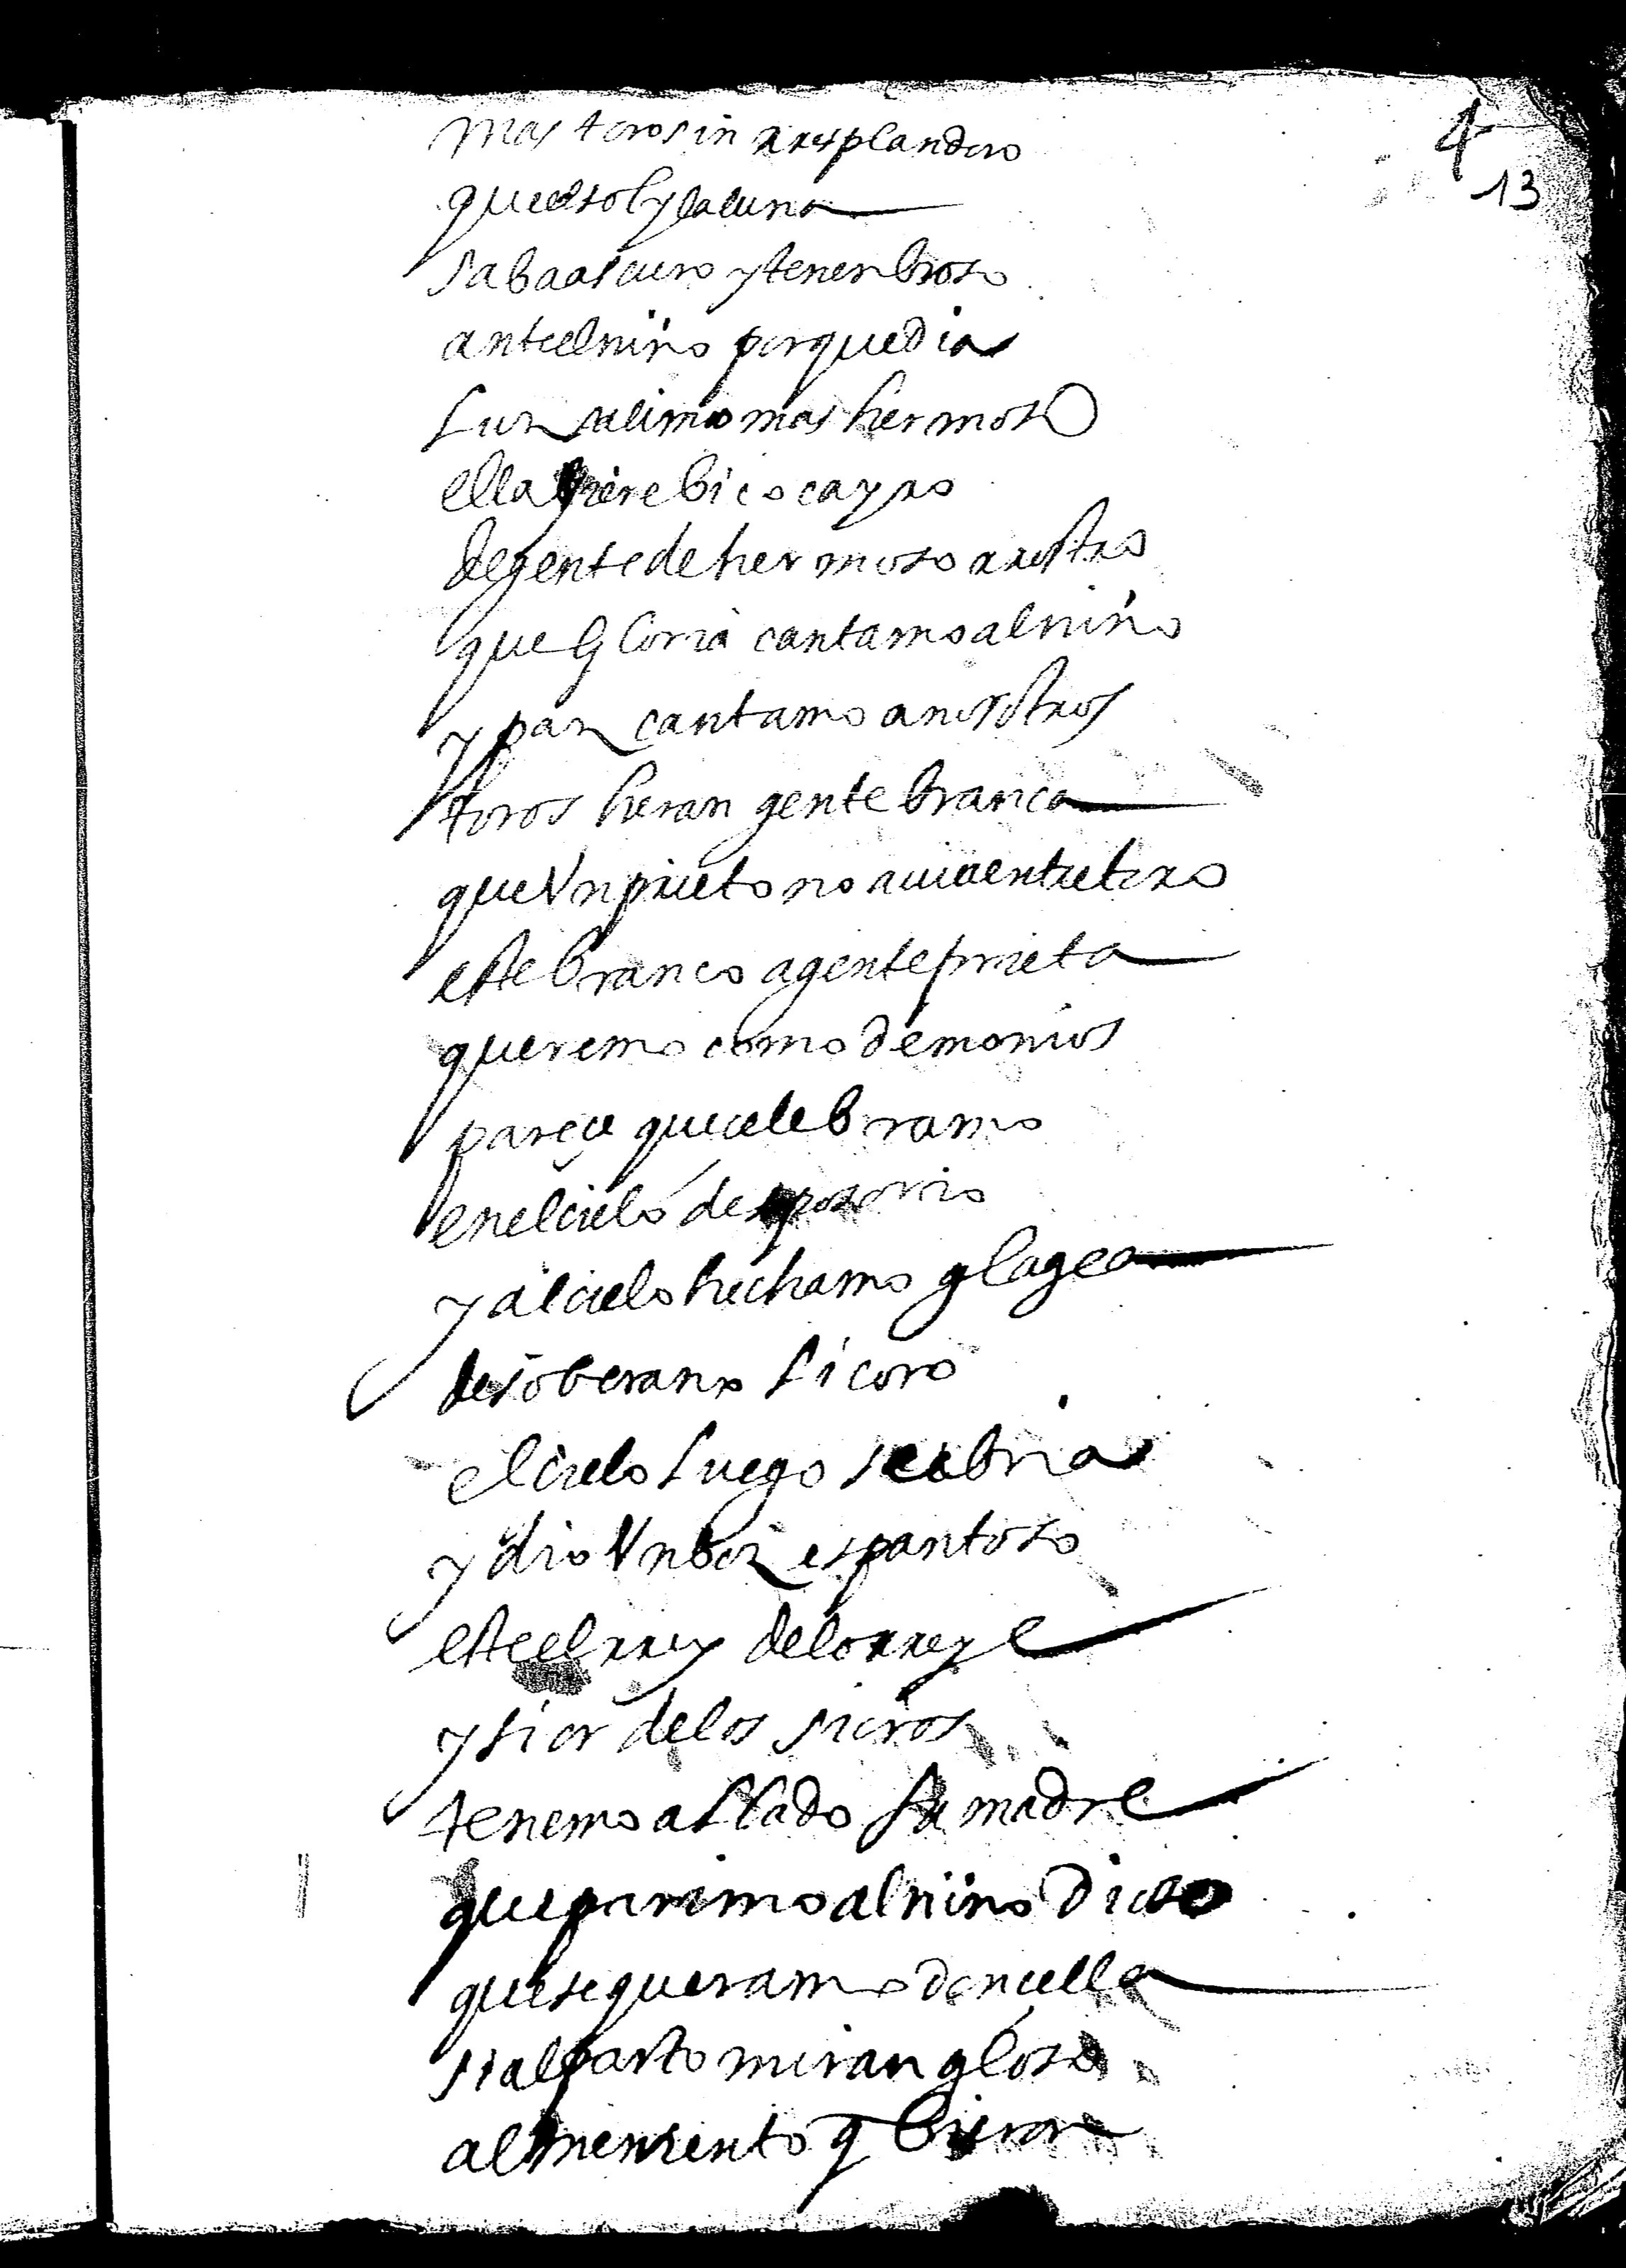 4
13
mas toro sin rresplandoro
que el sol y la luna
saba ascuro y tenenbroso
ante el niño porque dia
luz mas hermoso
ella bico cayro
de gente de hermoso rrostro
que gloria cantamo al niño
y paz cantamo a nosotros
toros heran gente branca
que Vn prieto no auia entre toro
este branco a gente prieta
queremo como demonios
pareçe que celebramo
en el cielo desposorio
y al cielo hechamo glagea
de soberano licoro
el cielo luego se abria
y dio Vn boz espantoso
este el rrey de lo rreye
y sior de los sioros
tenemo al lado su madre
que parimo al niño dioso
que se queramo doncella
si al parto miran gloso
al q